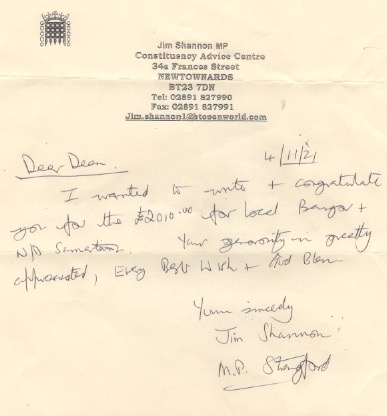 Jim Shannon MP
Constituency Advice Centre
34a Frances Street
NEWTOWNARDS
BT23 7DN
Tel: 02891 827990
Fax: 02891 827991
Jim.shannon1@btopenworld.com
4/11/21
Dear Dean.
I wanted to write + congratulate
you for the £2010.00 for local Bangor +
N/D Samaritans. Your generosity is greatly
appreciated, Every Best Wish + God Bless
Yours sincerely
Jim Shannon
M.P. Strangford